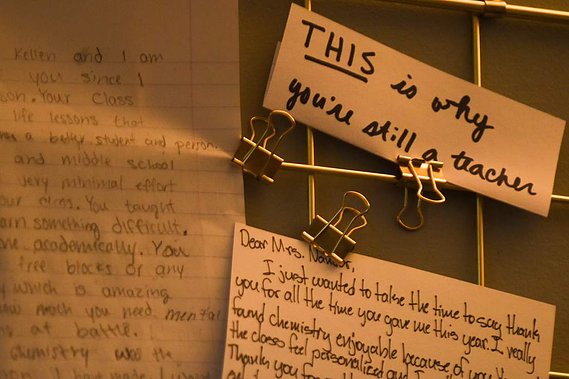 Kellen and I am
you since I
son. Your class
life lessons that
a better student and person
and middle school
very minimal effort
our class. You taught
arn something difficult.
me academically. You
free blocks or any
y which is amazing
ow much you need mental
at battle.
chemistry was the
THIS is why
you're still a teacher
Dear Mrs.
I just wanted to take the time to say thank
you for all the time you gave me this year. I really
found chemistry enjoyable because of you. You
the class feel personalized and I
Thank you for